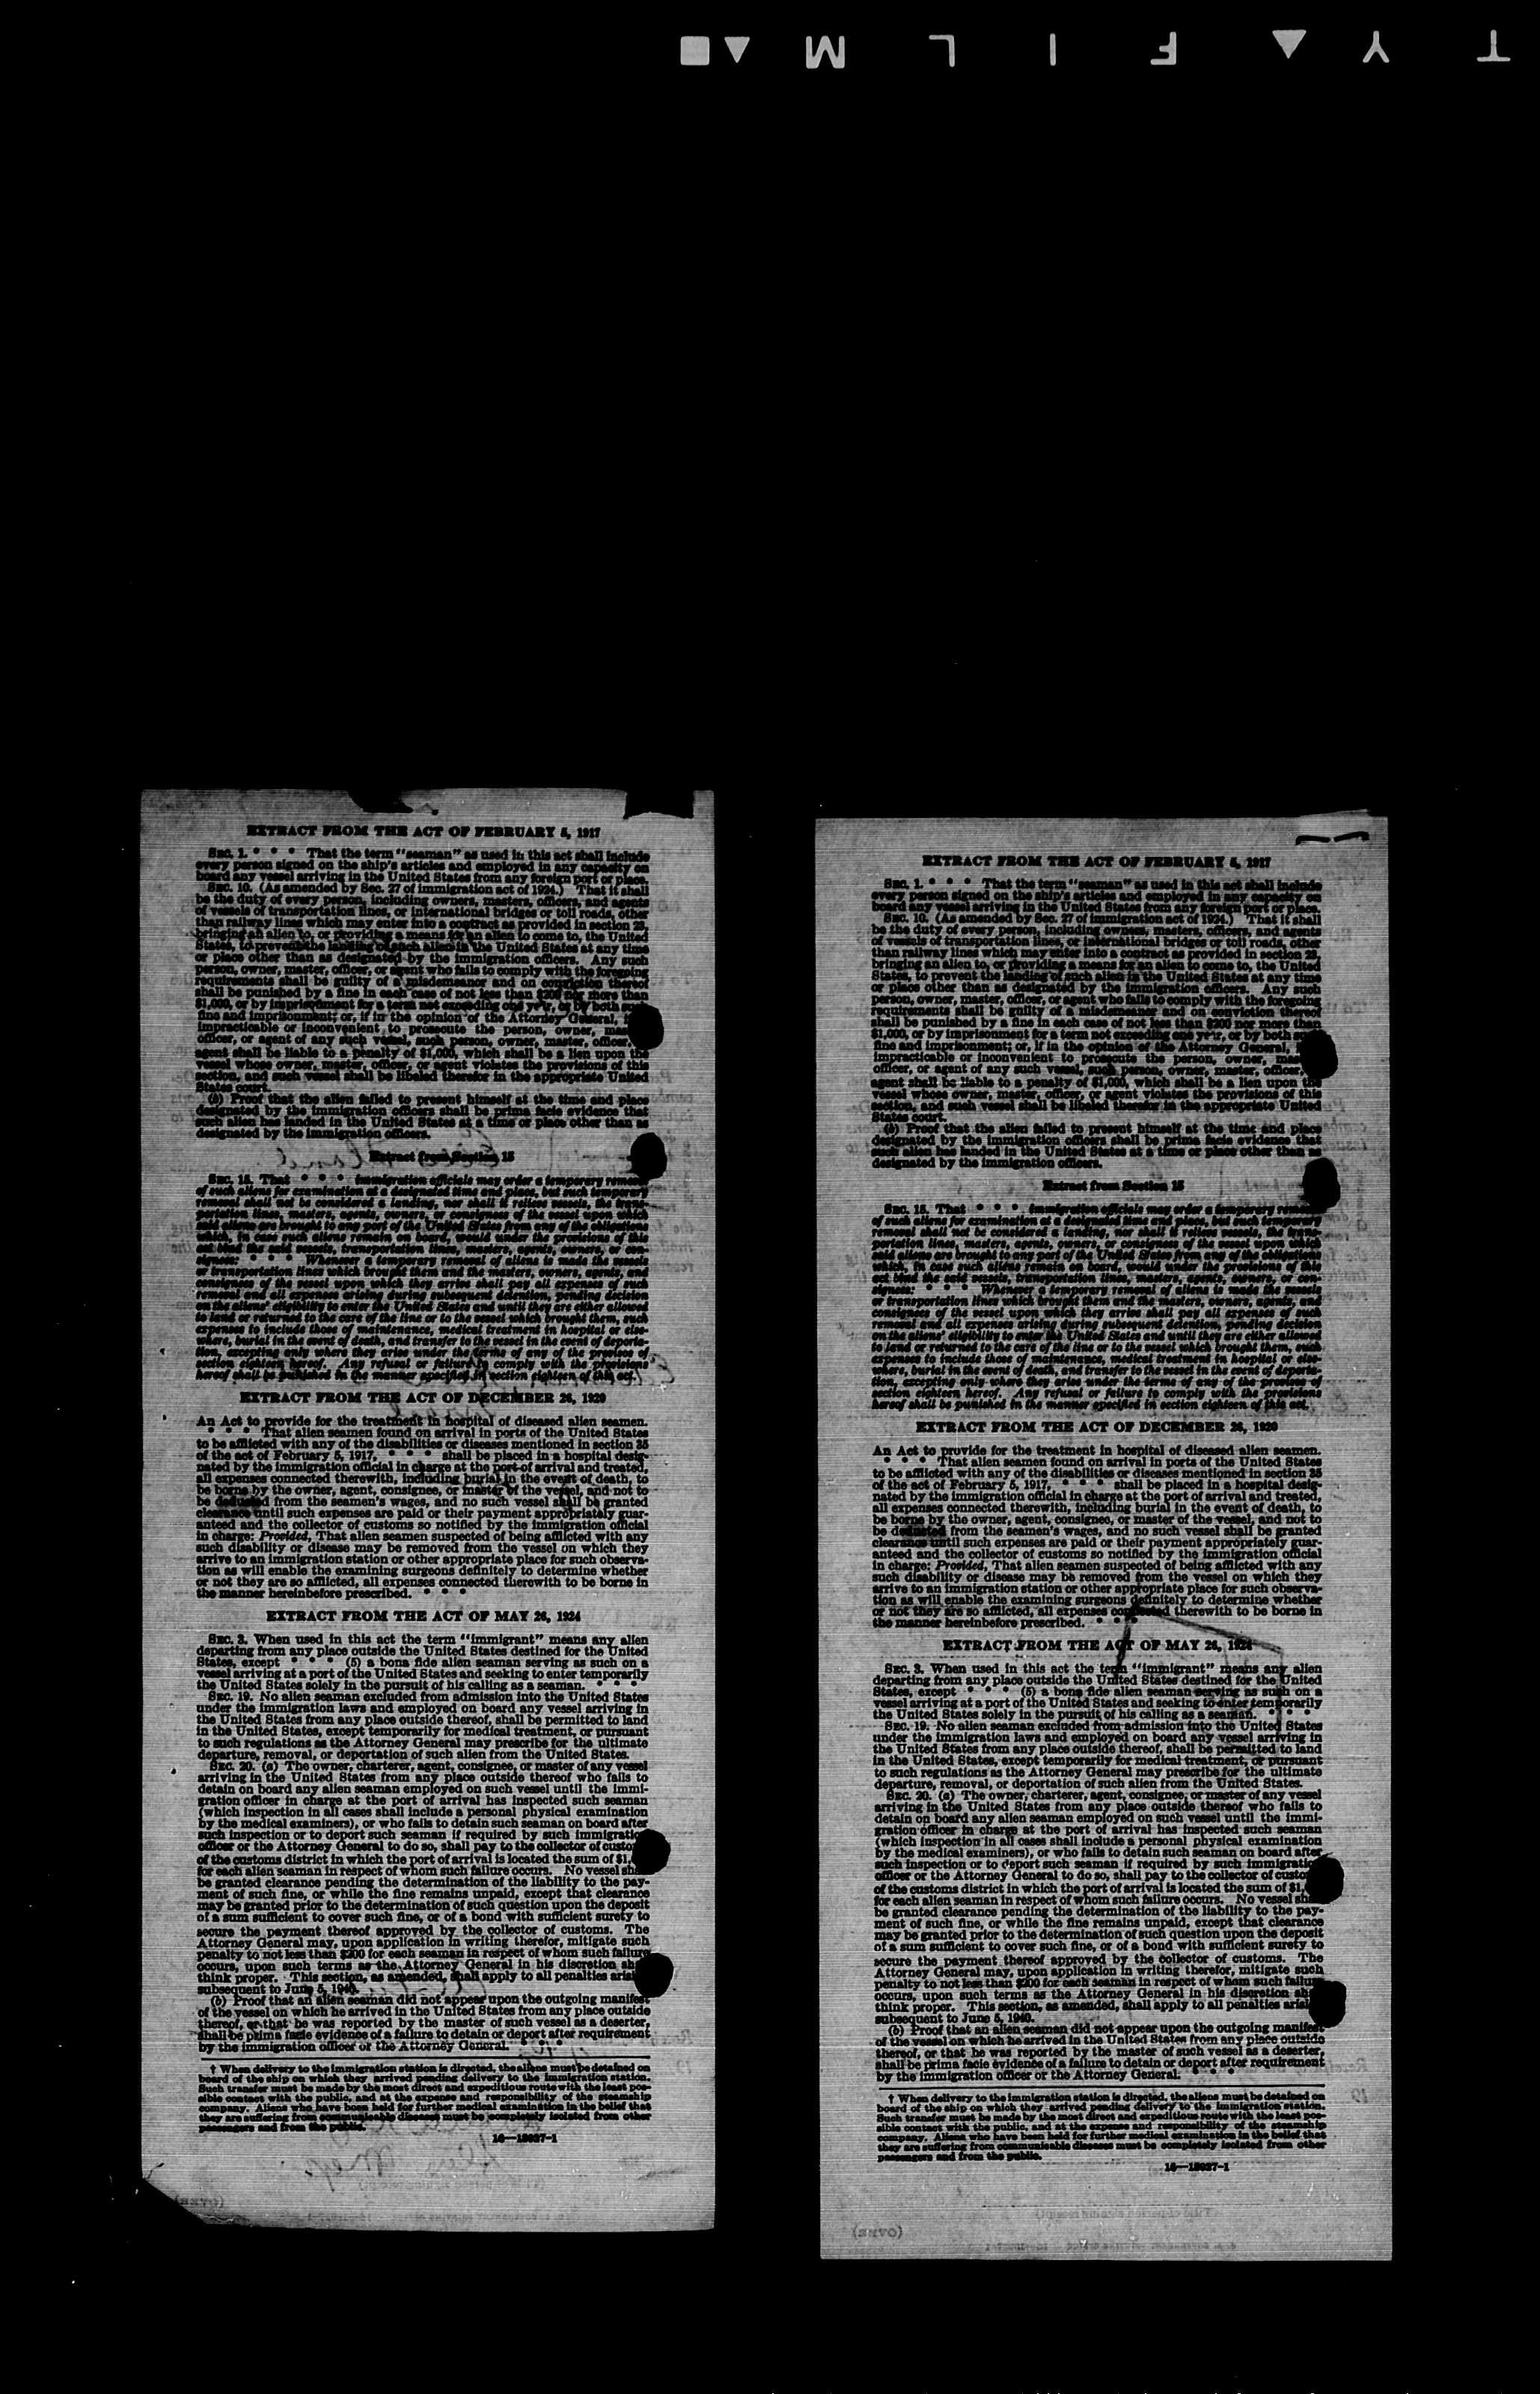 T Y A F I L M
EXTRACT FROM THE ACT OF FEBRUARY 5, 1917
SEC. 1. * * * That the term "seaman" as used in this act shall include
every person signed on the ship's articles and employed in any capacity on
board any vessel arriving in the United States from any foreign port or place.
SEC. 10. (As amended by Sec. 27 of immigration act of 1924.) That it shall
be the duty of every person, including owners, masters, officers, and agents
of vessels of transportation lines, or international bridges or toll roads, other
than railway lines which may enter into a contract as provided in section 23,
bringing an alien to, or providing a means for an alien to come to, the United
States, to prevent the landing of such alien in the United States at any time
or place other than as designated by the immigration officers. Any such
person, owner, master, officer, or agent who fails to comply with the foregoing
requirements shall be guilty of a misdemeanor and on conviction thereof
shall be punished by a fine in each case of not less than $200 nor more than
$1,000, or by imprisonment for a term not exceeding one year, or by both
fine and imprisonment; or, if in the opinion of the Attorney General,
impracticable or inconvenient to prosecute the person, owner,
officer, or agent of any such vessel, such person, owner, master, officer,
agent shall be liable to a penalty of $1,000, which shall be a lien upon the
vessel whose owner, master, officer, or agent violates the provisions of this
section, and such vessel shall be libeled therefor in the appropriate United
States court.
(b) Proof that the alien failed to present himself at the time and place
designated by the immigration officers shall be prima facie evidence that
such alien has landed in the United States at a time or place other than as
designated by the immigration officers.
Extract from Section 15
SEC. 15. That * * * immigration officials may order a temporary
of such aliens for examination at a designated time and place, but such temporary
removal shall not be considered a landing, nor shall it relieve vessels, the trans-
portation lines, masters, agents, owners, or consignees of the vessel upon which
said aliens are brought to any port of the United States from any of the obligations
which, in case such aliens remain on board, would under the provisions of this
act bind the said vessels, transportation lines, masters, agents, owners, or con-
signees: * * * Whenever a temporary removal of aliens is made the vessels
or transportation lines which brought them and the masters, owners, agents, and
consignees of the vessel upon which they arrive shall pay all expenses of such
removal and all expenses arising during subsequent detention, pending decision
on the aliens' eligibility to enter the United States and until they are either allowed
to land or returned to the care of the line or to the vessel which brought them, such
expenses to include those of maintenance, medical treatment in hospital or else-
where, burial in the event of death, and transfer to the vessel in the event of deporta-
tion, excepting only where they arise under the terms of any of the provisos of
section eighteen hereof. Any refusal or failure to comply with the provisions
hereof shall be punished in the manner specified in section eighteen of this act.
EXTRACT FROM THE ACT OF DECEMBER 26, 1920
An Act to provide for the treatment in hospital of diseased alien seamen.
* * * That alien seamen found on arrival in ports of the United States
to be afflicted with any of the disabilities or diseases mentioned in section 35
of the act of February 5, 1917, * * * shall be placed in a hospital desig-
nated by the immigration official in charge at the port of arrival and treated,
all expenses connected therewith, including burial in the event of death, to
be borne by the owner, agent, consignee, or master of the vessel, and not to
be deducted from the seamen's wages, and no such vessel shall be granted
clearance until such expenses are paid or their payment appropriately guar-
anteed and the collector of customs so notified by the immigration official
in charge: Provided, That alien seamen suspected of being afflicted with any
such disability or disease may be removed from the vessel on which they
arrive to an immigration station or other appropriate place for such observa-
tion as will enable the examining surgeons definitely to determine whether
or not they are so afflicted, all expenses connected therewith to be borne in
the manner hereinbefore prescribed. * * *
EXTRACT FROM THE ACT OF MAY 26, 1924
SEC. 3. When used in this act the term "immigrant" means any alien
departing from any place outside the United States destined for the United
States, except * * * (5) a bona fide alien seaman serving as such on a
vessel arriving at a port of the United States and seeking to enter temporarily
the United States solely in the pursuit of his calling as a seaman. * * *
SEC. 19. No alien seaman excluded from admission into the United States
under the immigration laws and employed on board any vessel arriving in
the United States from any place outside thereof, shall be permitted to land
in the United States, except temporarily for medical treatment, or pursuant
to such regulations as the Attorney General may prescribe for the ultimate
departure, removal, or deportation of such alien from the United States.
SEC. 20. (a) The owner, charterer, agent, consignee, or master of any vessel
arriving in the United States from any place outside thereof who fails to
detain on board any alien seaman employed on such vessel until the immi-
gration officer in charge at the port of arrival has inspected such seaman
(which inspection in all cases shall include a personal physical examination
by the medical examiners), or who fails to detain such seaman on board after
such inspection or to deport such seaman if required by such immigration
officer or the Attorney General to do so, shall pay to the collector of customs
of the customs district in which the port of arrival is located the sum of $1,
for each alien seaman in respect of whom such failure occurs. No vessel shall
be granted clearance pending the determination of the liability to the pay-
ment of such fine, or while the fine remains unpaid, except that clearance
may be granted prior to the determination of such question upon the deposit
of a sum sufficient to cover such fine, or of a bond with sufficient surety to
secure the payment thereof approved by the collector of customs. The
Attorney General may, upon application in writing therefor, mitigate such
penalty to not less than $200 for each seaman in respect of whom such failure
occurs, upon such terms as the Attorney General in his discretion shall
think proper. This section, as amended, shall apply to all penalties arising
subsequent to June 5, 1940.
(b) Proof that an alien seaman did not appear upon the outgoing manifest
of the vessel on which he arrived in the United States from any place outside
thereof, or that he was reported by the master of such vessel as a deserter,
shall be prima facie evidence of a failure to detain or deport after requirement
by the immigration officer or the Attorney General.
† When delivery to the immigration station is directed, the aliens must be detained on
board of the ship on which they arrived pending delivery to the immigration station.
Such transfer must be made by the most direct and expeditious route with the least pos-
sible contact with the public, and at the expense and responsibility of the steamship
company. Aliens who have been held for further medical examination in the belief that
they are suffering from communicable diseases must be completely isolated from other
passengers and from the public.
16—18037-1
EXTRACT FROM THE ACT OF FEBRUARY 5, 1917
SEC. 1. * * * That the term "seaman" as used in this act shall include
every person signed on the ship's articles and employed in any capacity on
board any vessel arriving in the United States from any foreign port or place.
SEC. 10. (As amended by Sec. 27 of immigration act of 1924.) That it shall
be the duty of every person, including owners, masters, officers, and agents
of vessels of transportation lines, or international bridges or toll roads, other
than railway lines which may enter into a contract as provided in section 23,
bringing an alien to, or providing a means for an alien to come to, the United
States, to prevent the landing of such alien in the United States at any time
or place other than as designated by the immigration officers. Any such
person, owner, master, officer, or agent who fails to comply with the foregoing
requirements shall be guilty of a misdemeanor and on conviction thereof
shall be punished by a fine in each case of not less than $200 nor more than
$1,000, or by imprisonment for a term not exceeding one year, or by both
fine and imprisonment; or, if in the opinion of the Attorney General,
impracticable or inconvenient to prosecute the person, owner,
officer, or agent of any such vessel, such person, owner, master, officer,
agent shall be liable to a penalty of $1,000, which shall be a lien upon the
vessel whose owner, master, officer, or agent violates the provisions of this
section, and such vessel shall be libeled therefor in the appropriate United
States court.
(b) Proof that the alien failed to present himself at the time and place
designated by the immigration officers shall be prima facie evidence that
such alien has landed in the United States at a time or place other than as
designated by the immigration officers.
Extract from Section 15
SEC. 15. That * * * immigration officials may order a temporary
of such aliens for examination at a designated time and place, but such temporary
removal shall not be considered a landing, nor shall it relieve vessels, the trans-
portation lines, masters, agents, owners, or consignees of the vessel upon which
said aliens are brought to any port of the United States from any of the obligations
which, in case such aliens remain on board, would under the provisions of this
act bind the said vessels, transportation lines, masters, agents, owners, or con-
signees: * * * Whenever a temporary removal of aliens is made the vessels
or transportation lines which brought them and the masters, owners, agents, and
consignees of the vessel upon which they arrive shall pay all expenses of such
removal and all expenses arising during subsequent detention, pending decision
on the aliens' eligibility to enter the United States and until they are either allowed
to land or returned to the care of the line or to the vessel which brought them, such
expenses to include those of maintenance, medical treatment in hospital or else-
where, burial in the event of death, and transfer to the vessel in the event of deporta-
tion, excepting only where they arise under the terms of any of the provisos of
section eighteen hereof. Any refusal or failure to comply with the provisions
hereof shall be punished in the manner specified in section eighteen of this act.
EXTRACT FROM THE ACT OF DECEMBER 26, 1920
An Act to provide for the treatment in hospital of diseased alien seamen.
* * * That alien seamen found on arrival in ports of the United States
to be afflicted with any of the disabilities or diseases mentioned in section 35
of the act of February 5, 1917, * * * shall be placed in a hospital desig-
nated by the immigration official in charge at the port of arrival and treated,
all expenses connected therewith, including burial in the event of death, to
be borne by the owner, agent, consignee, or master of the vessel, and not to
be deducted from the seamen's wages, and no such vessel shall be granted
clearance until such expenses are paid or their payment appropriately guar-
anteed and the collector of customs so notified by the immigration official
in charge: Provided, That alien seamen suspected of being afflicted with any
such disability or disease may be removed from the vessel on which they
arrive to an immigration station or other appropriate place for such observa-
tion as will enable the examining surgeons definitely to determine whether
or not they are so afflicted, all expenses connected therewith to be borne in
the manner hereinbefore prescribed. * * *
EXTRACT FROM THE ACT OF MAY 26, 1924
SEC. 3. When used in this act the term "immigrant" means any alien
departing from any place outside the United States destined for the United
States, except * * * (5) a bona fide alien seaman serving as such on a
vessel arriving at a port of the United States and seeking to enter temporarily
the United States solely in the pursuit of his calling as a seaman. * * *
SEC. 19. No alien seaman excluded from admission into the United States
under the immigration laws and employed on board any vessel arriving in
the United States from any place outside thereof, shall be permitted to land
in the United States, except temporarily for medical treatment, or pursuant
to such regulations as the Attorney General may prescribe for the ultimate
departure, removal, or deportation of such alien from the United States.
SEC. 20. (a) The owner, charterer, agent, consignee, or master of any vessel
arriving in the United States from any place outside thereof who fails to
detain on board any alien seaman employed on such vessel until the immi-
gration officer in charge at the port of arrival has inspected such seaman
(which inspection in all cases shall include a personal physical examination
by the medical examiners), or who fails to detain such seaman on board after
such inspection or to deport such seaman if required by such immigration
officer or the Attorney General to do so, shall pay to the collector of customs
of the customs district in which the port of arrival is located the sum of $1,
for each alien seaman in respect of whom such failure occurs. No vessel shall
be granted clearance pending the determination of the liability to the pay-
ment of such fine, or while the fine remains unpaid, except that clearance
may be granted prior to the determination of such question upon the deposit
of a sum sufficient to cover such fine, or of a bond with sufficient surety to
secure the payment thereof approved by the collector of customs. The
Attorney General may, upon application in writing therefor, mitigate such
penalty to not less than $200 for each seaman in respect of whom such failure
occurs, upon such terms as the Attorney General in his discretion shall
think proper. This section, as amended, shall apply to all penalties arising
subsequent to June 5, 1940.
(b) Proof that an alien seaman did not appear upon the outgoing manifest
of the vessel on which he arrived in the United States from any place outside
thereof, or that he was reported by the master of such vessel as a deserter,
shall be prima facie evidence of a failure to detain or deport after requirement
by the immigration officer or the Attorney General.
† When delivery to the immigration station is directed, the aliens must be detained on
board of the ship on which they arrived pending delivery to the immigration station.
Such transfer must be made by the most direct and expeditious route with the least pos-
sible contact with the public, and at the expense and responsibility of the steamship
company. Aliens who have been held for further medical examination in the belief that
they are suffering from communicable diseases must be completely isolated from other
passengers and from the public.
16—18037-1
(OVER)